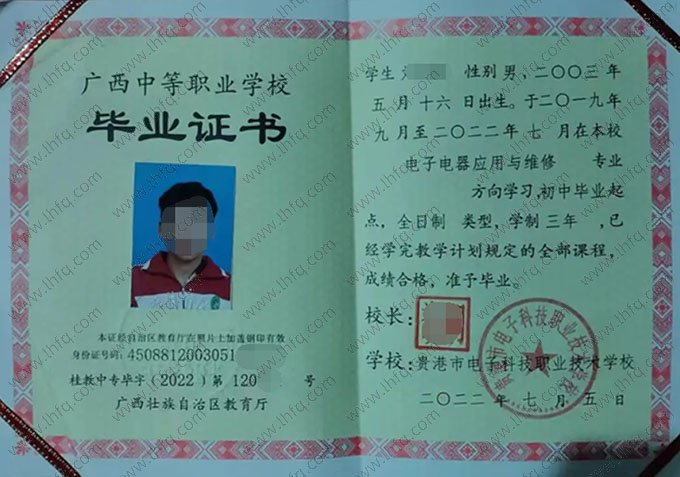 广西中等职业学校
毕业证书
本证经自治区教育厅在照片上加盖钢印有效
身份证号码：45088120030 51
桂教中专毕字（2022）第120 号
广西壮族自治区教育厅
学生 性别 男，二〇〇三 年
五 月 十六 日出生。于二〇一九年
九 月至二〇二二年 七 月在本校
电子电器应用与维修 专业
方向学习，初中毕业起
点，全日制 类型，学制 三年 ，已
经学完教学计划规定的全部课程，
成绩合格，准予毕业。
校长：
学校：贵港市电子科技职业技术学校
二〇二二 年 七 月 五 日
贵港市电子科技职业技术学校
www.lhfq.com